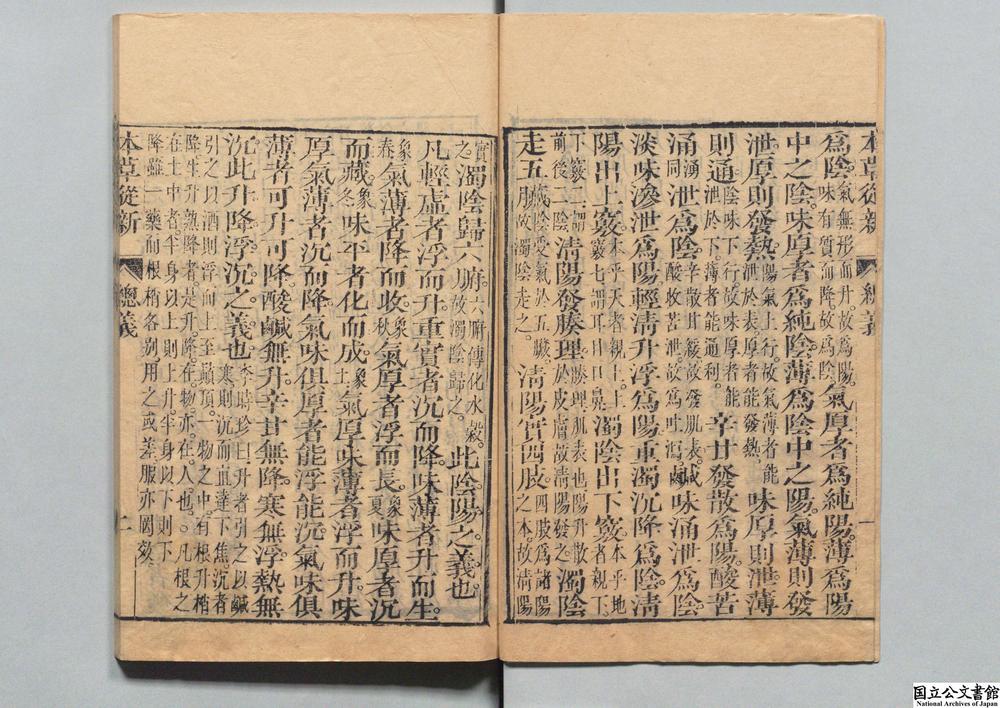 本草從新 總義 一
爲陰氣無形而升故爲陽味有質而降故爲陰氣厚者爲純陽薄爲陽
中之陰味厚者爲純陰薄爲陰中之陽氣薄則發
泄厚則發熱陽氣上行故氣薄者能泄於表厚者能發熱味厚則泄薄
則通陰味下行故味厚者能泄於下薄者能通利辛甘發散爲陽酸苦
涌湧同泄爲陰辛散甘緩故發肌表酸收苦泄故爲吐瀉鹹味涌泄爲陰
淡味滲泄爲陽輕清升浮爲陽重濁沉降爲陰清
陽出上竅本乎天者親上上竅七謂耳目口鼻濁陰出下竅本乎地者親下
下竅二謂前後二陰清陽發腠理腠理肌表也陽升散於皮膚故清陽發之濁陰
走五臟陰受氣於五臟故濁陰走之清陽實四肢四肢爲諸陽之本故清陽
實之濁陰歸六腑六腑傳化水穀故濁陰歸之此陰陽之義也
凡輕虛者浮而升重實者沉而降味薄者升而生
象春氣薄者降而收象秋氣厚者浮而長象夏味厚者沉
而藏象冬味平者化而成象土氣厚味薄者浮而升味
厚氣薄者沉而降氣味俱厚者能浮能沉氣味俱
薄者可升可降酸鹹無升辛甘無降寒無浮熱無
沉此升降浮沉之義也李時珍曰升者引之以鹹寒則沉而直達下焦沉者
引之以酒則浮而上至巔頂一物之中有根升梢
降生升熟降者是升降在物亦在人也凡根之
在土中者半身以上則上升半身以下則下
降雖一藥而根梢各別用之或差服亦罔效
本草從新 總義 二
国立公文書館
National Archives of Japan